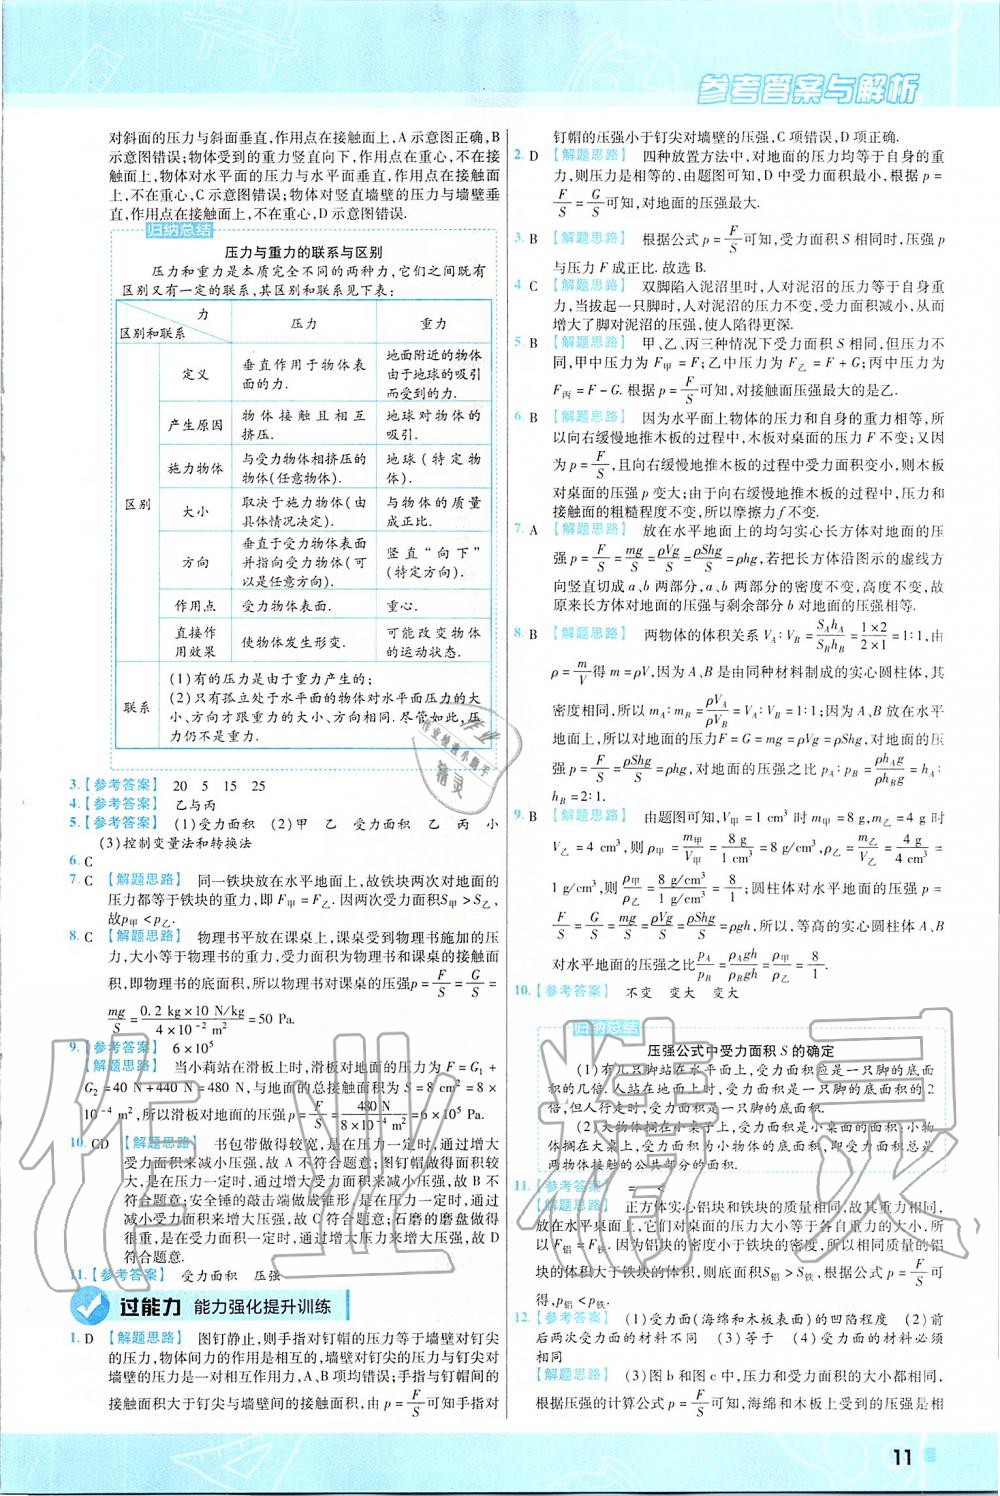 参考答案与解析
对斜面的压力与斜面垂直,作用点在接触面上,A 示意图正确,B
示意图错误;物体受到的重力竖直向下,作用点在重心,不在接
触面上,物体对水平面的压力与水平面垂直,作用点在接触面
上,不在重心,C 示意图错误;物体对竖直墙壁的压力与墙壁垂
直,作用点在接触面上,不在重心,D 示意图错误.
归纳总结
压力与重力的联系与区别
压力和重力是本质完全不同的两种力,它们之间既有
区别又有一定的联系,其区别和联系见下表:
力
区别和联系
压力
重力
区别
定义
垂直作用于物体表
面的力.
地面附近的物体
由于地球的吸引
而受到的力.
产生原因
物体接触且相互
挤压.
地球对物体的
吸引.
施力物体
与受力物体相挤压的
物体(任意物体).
地球(特定物
体).
大小
取决于施力物体(由
具体情况决定).
与物体的质量
成正比.
方向
垂直于受力物体表面
并指向受力物体(可
以是任意方向).
竖直“向下”
(特定方向).
作用点
受力物体表面.
重心.
直接作
用效果
使物体发生形变.
可能改变物体
的运动状态.
联系
(1)有的压力是由于重力产生的;
(2)只有孤立处于水平面的物体对水平面压力的大
小、方向才跟重力的大小、方向相同.尽管如此,压
力仍不是重力.
3.【参考答案】 20 5 15 25
4.【参考答案】 乙与丙
5.【参考答案】 (1)受力面积 (2)甲 乙 受力面积 乙 丙 小
(3)控制变量法和转换法
6. C
7. C 【解题思路】 同一铁块放在水平地面上,故铁块两次对地面的
压力都等于铁块的重力,即 F甲=F乙.因两次受力面积S甲>S乙,
故p甲<p乙.
8. C 【解题思路】 物理书平放在课桌上,课桌受到物理书施加的压
力,大小等于物理书的重力,受力面积为物理书和课桌的接触面
积,即物理书的底面积,所以物理书对课桌的压强p=F/S=G/S=
mg/S=0.2 kg×10 N/kg / 4×10⁻² m²=50 Pa.
9.【参考答案】 6×10⁵
【解题思路】 当小莉站在滑板上时,滑板对地面的压力为 F=G₁+
G₂=40 N+440 N=480 N,与地面的总接触面积为 S=8 cm²=8×
10⁻⁴ m²,所以滑板对地面的压强p=F/S=480 N / 8×10⁻⁴ m²=6×10⁵ Pa.
10. CD 【解题思路】 书包带做得较宽,是在压力一定时,通过增大
受力面积来减小压强,故 A 不符合题意;图钉帽做得面积较
大,是在压力一定时,通过增大受力面积来减小压强,故 B 不
符合题意;安全锤的敲击端做成锥形,是在压力一定时,通过
减小受力面积来增大压强,故 C 符合题意;石磨的磨盘做得
很重,是在受力面积一定时,通过增大压力来增大压强,故 D
符合题意.
11.【参考答案】 受力面积 压强
过能力 能力强化提升训练
1. D 【解题思路】 图钉静止,则手指对钉帽的压力等于墙壁对钉尖
的压力,物体间力的作用是相互的,墙壁对钉尖的压力与钉尖对
墙壁的压力是一对相互作用力,A、B项均错误;手指与钉帽间的
接触面积大于钉尖与墙壁间的接触面积,由 p=F/S可知手指对
钉帽的压强小于钉尖对墙壁的压强,C 项错误,D 项正确.
2. D 【解题思路】 四种放置方法中,对地面的压力均等于自身的重
力,则压力是相等的,由题图可知,D 中受力面积最小,根据 p=
F/S=G/S可知,对地面的压强最大.
3. B 【解题思路】 根据公式 p=F/S可知,受力面积 S 相同时,压强 p
与压力 F 成正比.故选 B.
4. C 【解题思路】 双脚陷入泥沼里时,人对泥沼的压力等于人的重
力,当拔起一只脚时,人对泥沼的压力不变,受力面积减小,从而
增大了脚对泥沼的压强,使人陷得更深.
5. B 【解题思路】 甲、乙、丙三种情况下受力面积 S 相同,但压力不
同,甲中压力为 F甲=F;乙中压力为 F乙=F+G;丙中压力为
F丙=F-G.根据 p=F/S可知,对接触面压强最大的是乙.
6. B 【解题思路】 因为水平面上物体的压力和自身的重力相等,所
以向右缓慢地推木板的过程中,木板对桌面的压力 F 不变;又因
为 p=F/S,且向右缓慢地推木板的过程中受力面积变小,则木板
对桌面的压强 p 变大;由于向右缓慢地推木板的过程中,压力和
接触面的粗糙程度不变,所以摩擦力f不变.
7. A 【解题思路】 放在水平地面上的均匀实心长方体对地面的压
强 p=F/S=mg/S=ρVg/S=ρShg/S=ρhg,若把长方体沿图示的虚线方
向竖直切成 a、b 两部分,a、b 两部分的密度不变,高度不变,故
原来长方体对地面的压强与剩余部分 b 对地面的压强相等.
8. B 【解题思路】 两物体的体积关系 VA∶VB=SAhA/SBhB=1×2/2×1=1∶1,由
ρ=m/V得 m=ρV,因为 A、B 是由同种材料制成的实心圆柱体,其
密度相同,所以 mA∶mB=ρVA/ρVB=VA∶VB=1∶1;因为 A、B 放在水平
地面上,所以对地面的压力F=G=mg=ρVg=ρShg,对地面的压
强=F/S=ρShg/S=ρhg,对地面的压强之比 pA∶pB=ρhAg/ρhBg=hA∶
hB=2∶1.
9. B 【解题思路】 由题图可知,V甲=1 cm³ 时 m甲=8 g,m乙=4 g 时
V乙=4 cm³,则 ρ甲=m甲/V甲=8 g/1 cm³=8 g/cm³,ρ乙=m乙/V乙=4 g/4 cm³=
1 g/cm³,则ρ甲/ρ乙=8 g/cm³ / 1 g/cm³=8/1;圆柱体对水平地面的压强 p=
F/S=G/S=mg/S=ρVg/S=ρShg/S=ρgh,所以,等高的实心圆柱体A、B
对水平地面的压强之比pA/pB=ρAgh/ρBgh=ρ甲/ρ乙=8/1.
10.【参考答案】 不变 变大 变大
归纳总结
压强公式中受力面积 S 的确定
(1)有几只脚站在水平面上,受力面积应是一只脚的底面积
的几倍.人站在地面上时,受力面积是一只脚的底面积的2
倍,但人行走时,受力面积是一只脚的底面积.
(2)大物体搁在小桌子上,受力面积是小桌面的面积;小物体
搁在大桌上,受力面积为小物体的底面积,即受力面积总是
两物体接触的公共部分的面积.
11.【参考答案】 = <
【解题思路】 正方体实心铝块和铁块的质量相同,故其重力相同,
放在水平桌面上,它们对桌面的压力大小等于各自重力的大小,所
以F铝=F铁.因为铝块的密度小于铁块的密度,所以相同质量的铝
块的体积大于铁块的体积,则底面积S铝>S铁,根据 p=F/S可
得,p铝<p铁.
12.【参考答案】 (1)受力面(海绵和木板表面)的凹陷程度 (2)前
后两次受力面的材料不同 (3)等于 (4)受力面的材料必须
相同
【解题思路】 (3)图 b 和图 c 中,压力和受力面积的大小都相同,
根据压强的计算公式 p=F/S可知,海绵和木板上受到的压强是相
11
作业精灵
作业检查小助手
精灵